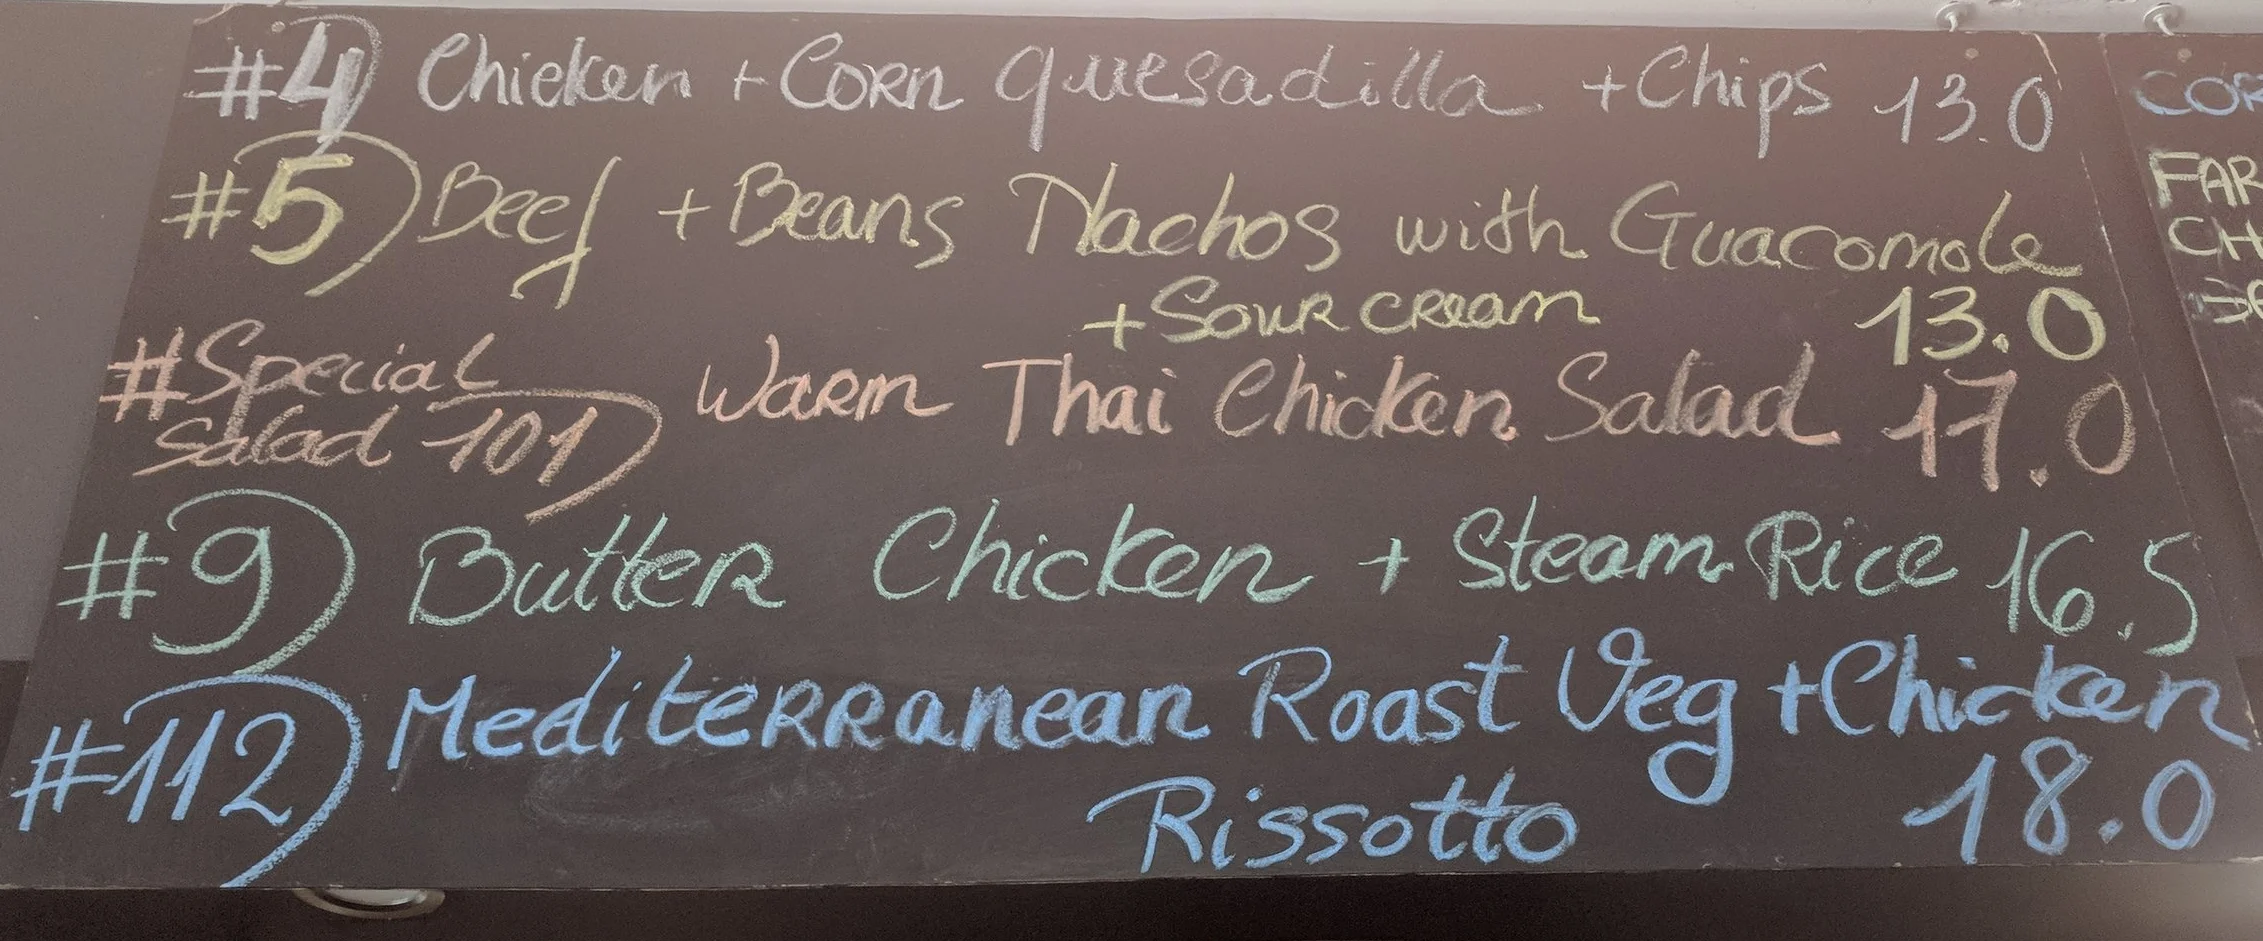 #4) Chicken + Corn quesadilla + Chips 13.0
#5) Beef + Beans Nachos with Guacomole
+ Sour cream 13.0
#Special
Salad 101) Warm Thai Chicken Salad 17.0
#9) Butter Chicken + Steam Rice 16.5
#112) Mediterranean Roast Veg + Chicken
Rissotto 18.0
COR
FAR
CH